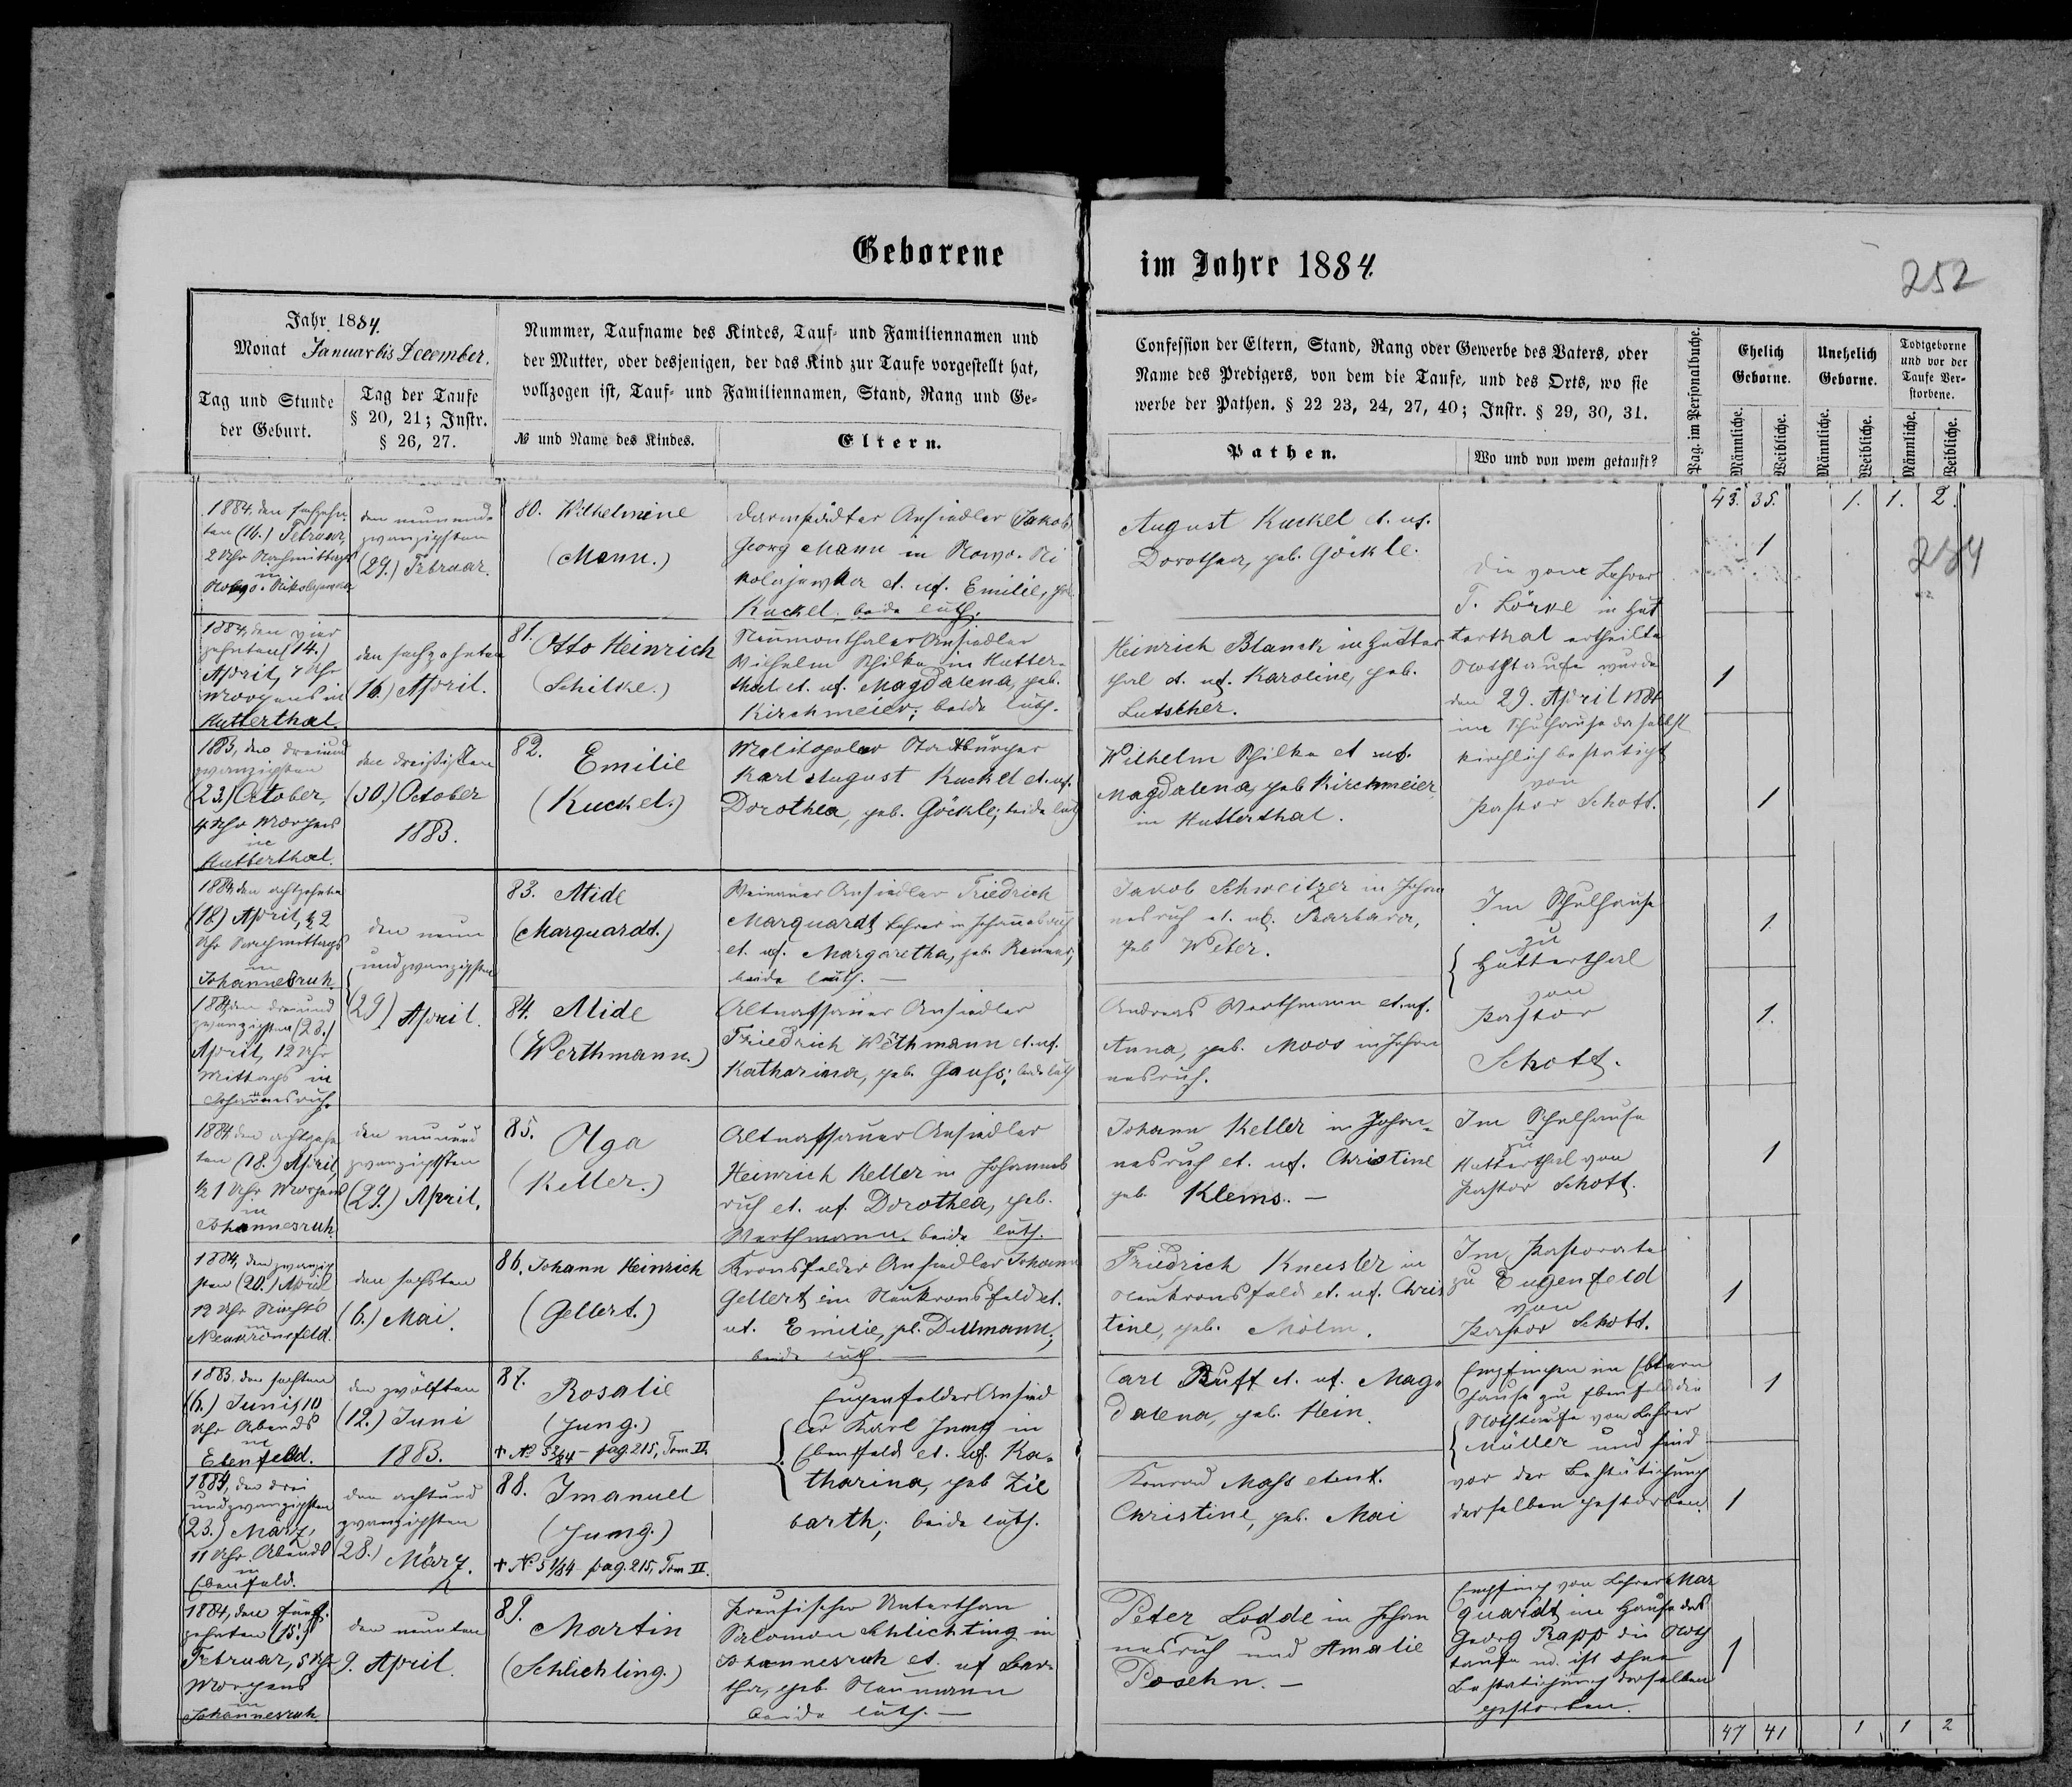 Geborene
im Jahre 1884.
252
Jahr 1884.
Monat Januar bis December.
Tag und Stunde
der Geburt.
Tag der Taufe
§ 20, 21; Instr.
§ 26, 27.
Nummer, Taufname des Kindes, Tauf- und Familiennamen und
der Mutter, oder desjenigen, der das Kind zur Taufe vorgestellt hat,
vollzogen ist, Tauf- und Familiennamen, Stand, Rang und Ge-
№ und Name des Kindes.
Eltern.
Confession der Eltern, Stand, Rang oder Gewerbe des Vaters, oder
Name des Predigers, von dem die Taufe, und des Orts, wo sie
werbe der Pathen. § 22 23, 24, 27, 40; Instr. § 29, 30, 31.
Pathen.
Wo und von wem getauft?
Pag. im Personalbuche.
Ehelich
Geborne.
Unehelich
Geborne.
Todtgeborne
und vor der
Taufe Ver-
storbene.
Männliche.
Weibliche.
Männliche.
Weibliche.
Männliche.
Weibliche.
43. 35. 1. 1. 2.
284
1884, den sechzehn
ten (16.) Februar,
2 Uhr Nachmittags
in
Nowo-Nikolajewka
den neunund-
zwanzigsten
(29.) Februar.
80. Wilhelmine
(Mann.)
Darmstädter Ansiedler Jakob
Georg Mann in Nowo-Ni
kolajewka et. ux. Emilie, geb.
Kuckel, beide luth.
August Kuckel et. ux.
Dorothea, geb. Göckle.
Die vom Lehrer
T. Lörke in Hut
terthal ertheilte
Nothtaufe wurde
den 29. April 1884
im Schulhause daselbst
kirchlich bestätigt
von
Pastor Schott.
1
1884, den vier
zehnten (14.)
April, 7 Uhr
Morgens in
Hutterthal.
den sechzehnten
(16.) April.
81. Otto Heinrich
(Schilke.)
Neumonthaler Ansiedler
Wilhelm Schilke in Hutter-
thal et. ux. Magdalena, geb.
Kirchmeier; beide luth.
Heinrich Blanck in Hutter
thal et. ux. Karoline, geb.
Lutscher.
1
1883, den dreiund
zwanzigsten
(23.) October,
4 Uhr Morgens
in
Hutterthal.
den dreißigsten
(30.) October
1883.
82. Emilie
(Kuckel.)
Melitopoler Stadtbürger
Karl August Kuckel et. ux.
Dorothea, geb. Göckle; beide luth
Wilhelm Schilke et ux.
Magdalena, geb Kirchmeier
in Hutterthal.
1
1884 den achtzehnten
(18.) April, ½2
Uhr Nachmittags
in
Johannesruh.
den neun
undzwanzigsten
(29) April.
83. Alide
(Marquardt.)
Weinauer Ansiedler Friedrich
Marquardt Lehrer in Johannesruh
et. ux. Margaretha, geb. Renner;
beide luth. —
Jakob Schweitzer in Johan
nesruh et. ux. Barbara,
geb Weter.
Im Schulhause
zu
Hutterthal
von
Pastor
Schott.
1.
1884 den dreiund
zwanzigsten (23.)
April, 12 Uhr
Mittags in
Johannesruh.
84. Alide
(Werthmann.)
Altnassauer Ansiedler
Friedrich Wethmann et. ux.
Katharina, geb. Gauss; beide luth
Andreas Werthmann et. ux.
Anna, geb. Moos in Johan
nesruh.
1.
1884 den achtzehn
ten (18.) April,
½ 1 Uhr Morgens
in
Johannesruh.
den neunund
zwanzigsten
(29.) April.
85. Olga
(Keller.)
Altnassauer Ansiedler
Heinrich Keller in Johannes
ruh et. ux. Dorothea, geb.
Werthmann, beide luth.
Johann Keller in Johan-
nesruh et. ux. Christine
geb. Klems. —
Im Schulhause
zu
Hutterthal von
Pastor Schott.
1
1884, den zwanzig
sten (20.) April
12 Uhr Nachts
in
Neukronsfeld.
den sechsten
(6.) Mai.
86. Johann Heinrich
(Gellert.)
Kronsfelder Ansiedler Johann
Gellert in Neukronsfeld et.
ux. Emilie, geb. Dellmann;
beide luth —
Friedrich Kneisler in
Neukronsfeld et. ux. Chris
tine, geb. Mölm.
Im Pastorate
zu Eugenfeld
von
Pastor Schott.
1
1883. den sechsten
(6.) Juni, 10
Uhr Abends
in
Ebenfeld.
den zwölften
(12.) Juni
1883.
87. Rosalie
(Jung.)
+ № 52/84 – pag. 215, Tom II.
Eugenfelder Ansied
ler Karl Jung in
Ebenfeld et. ux. Ka-
tharina, geb Zie
barth; beide luth.
Carl Buff et. ux. Mag-
dalena, geb. Hein.
Empfingen im Eltern
hause zu Ebenfeld die
Nothtaufe von Lehrer
Müller und sind
vor der Bestätigung
derselben gestorben.
1
1884, den drei
undzwanzigsten
(23.) März,
11 Uhr Abends
in
Ebenfeld.
den achtund
zwanzigsten
(28.) März.
88. Imanuel
(Jung.)
+ № 51/84 – pag. 215, Tom II.
Konrad Mass et ux.
Christine, geb. Mai
1
1884, den fünf-
zehnten (15.)
Februar, 5 Uhr
Morgens
in
Johannesruh.
den neunten
9. April.
89. Martin
(Schlichting.)
Preußischer Unterthan
Salomon Schlichting in
Johannesruh et. ux Ber-
tha, geb. Neumann
beide luth. —
Peter Lodde in Johan
nesruh und Amalie
Posehn. —
Empfing von Lehrer Mar
quardt im Hause des
Georg Rapp die Noth
taufe u. ist ohne
Bestätigung derselben
gestorben.
1
47 41 1 1 2